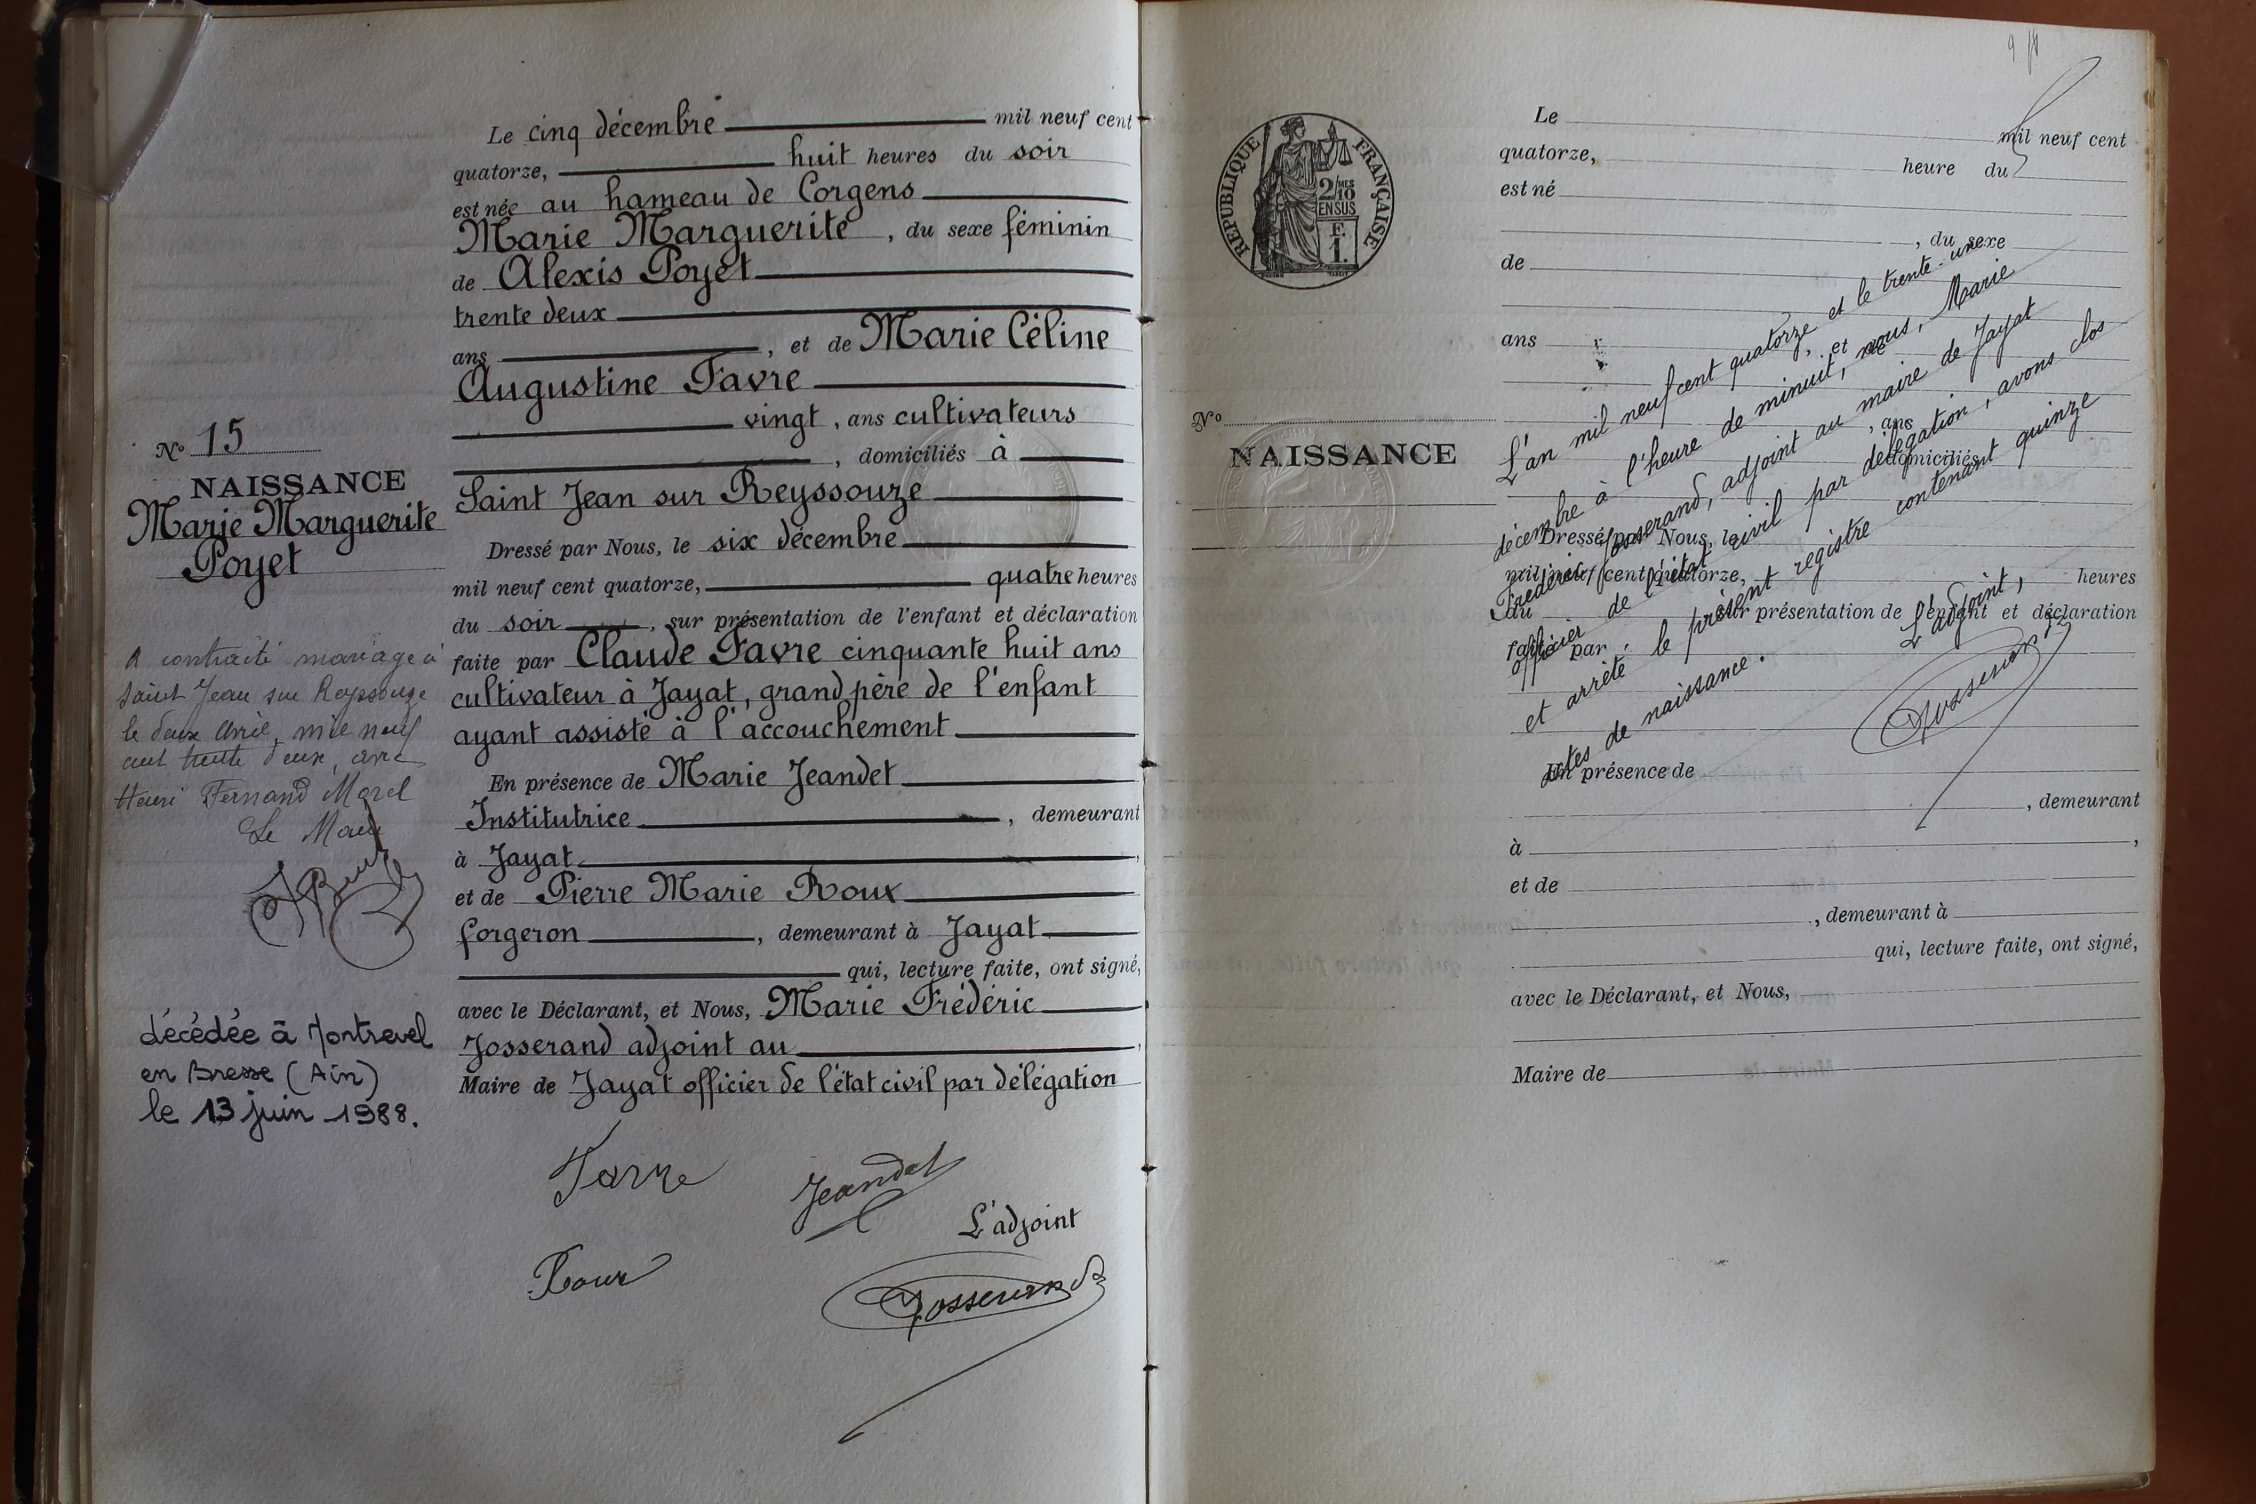 Le cinq décembre mil neuf cent
quatorze, huit heures du soir
est née au hameau de Corgens
Marie Marguerite, du sexe féminin
de Alexis Poyet
trente deux
ans, et de Marie Céline
Augustine Favre
vingt, ans cultivateurs
, domiciliés à
Saint Jean sur Reyssouze
Dressé par Nous, le six décembre
mil neuf cent quatorze, quatre heures
du soir, sur présentation de l'enfant et déclaration
faite par Claude Favre cinquante huit ans
cultivateur à Jayat, grand père de l'enfant
ayant assisté à l'accouchement
En présence de Marie Jeandet
Institutrice, demeurant
à Jayat,
et de Pierre Marie Roux
forgeron, demeurant à Jayat
qui, lecture faite, ont signé,
avec le Déclarant, et Nous, Marie Frédéric
Josserand adjoint au,
Maire de Jayat officier de l'état civil par délégation
Favre
Jeandet
L'adjoint
Roux
Josserand
No 15
NAISSANCE
Marie Marguerite
Poyet
A contracté mariage à
Saint Jean sur Reyssouze
le deux avril mil neuf
cent trente deux, avec
Henri Fernand Morel
Le Maire
décédée à Montrevel
en Bresse (Ain)
le 13 juin 1988.
RÉPUBLIQUE FRANÇAISE
2/10 MES
EN SUS
F.
1.
No
NAISSANCE
Le mil neuf cent
quatorze, heure du
est né
, du sexe
de
ans, et de
, ans
domiciliés
Dressé par Nous, le
mil neuf cent quatorze, heures
du sur présentation de l'enfant et déclaration
faite par
En présence de
, demeurant
à,
et de
, demeurant à
qui, lecture faite, ont signé,
avec le Déclarant, et Nous,
Maire de
L'an mil neuf cent quatorze et le trente-une
décembre à l'heure de minuit, nous, Marie
Frédéric Josserand, adjoint au maire de Jayat
officier de l'état civil par délégation, avons clos
et arrêté le présent registre contenant quinze
actes de naissance.
L'adjoint,
Josserand